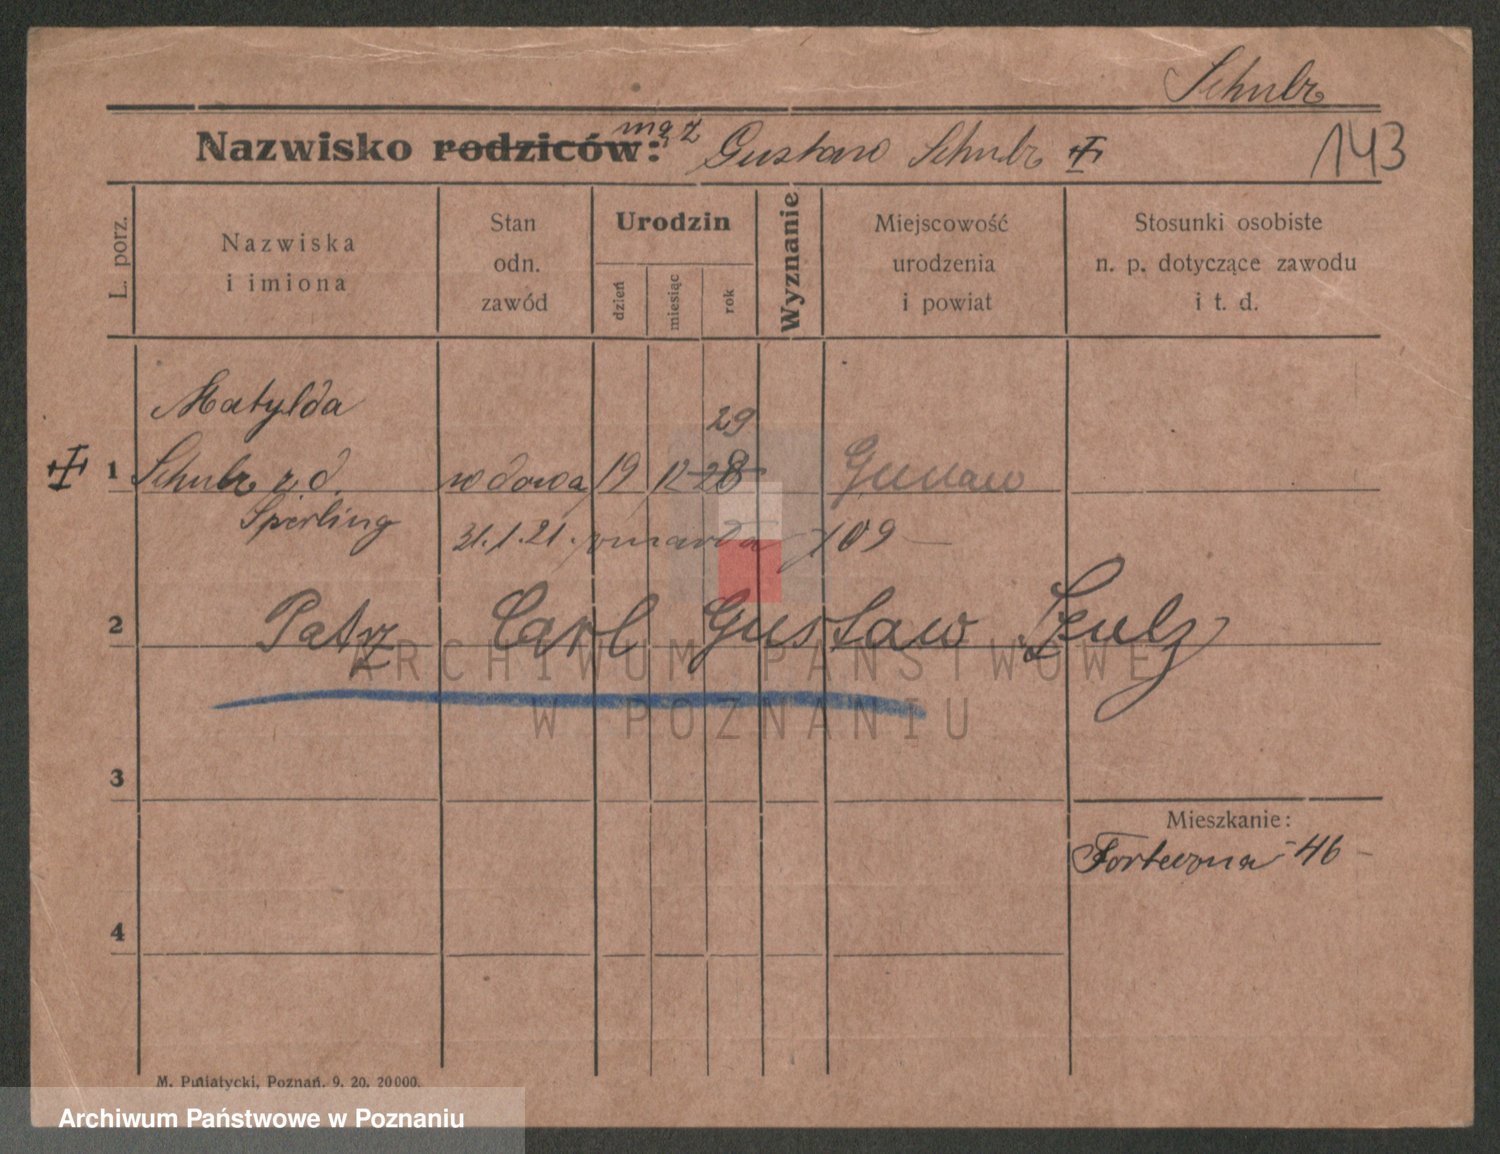 Schulz
Nazwisko rodziców: mąż Gustaw Schulz
143
L. porz.
Nazwiska
i imiona
Stan
odn.
zawód
Urodzin
dzień
miesiąc
rok
Wyznanie
Miejscowość
urodzenia
i powiat
Stosunki osobiste
n. p. dotyczące zawodu
i t. d.
Matylda
29
1 Schulz z. d. wdowa 19 12 28
Sperling
31.1.21. zmarła 109
2 Patrz Carl Gustaw Szulz
ARCHIWUM PAŃSTWOWE
W POZNANIU
3
Mieszkanie:
Forteczna 46
4
M. Putiatycki, Poznań. 9. 20. 20000.
Archiwum Państwowe w Poznaniu